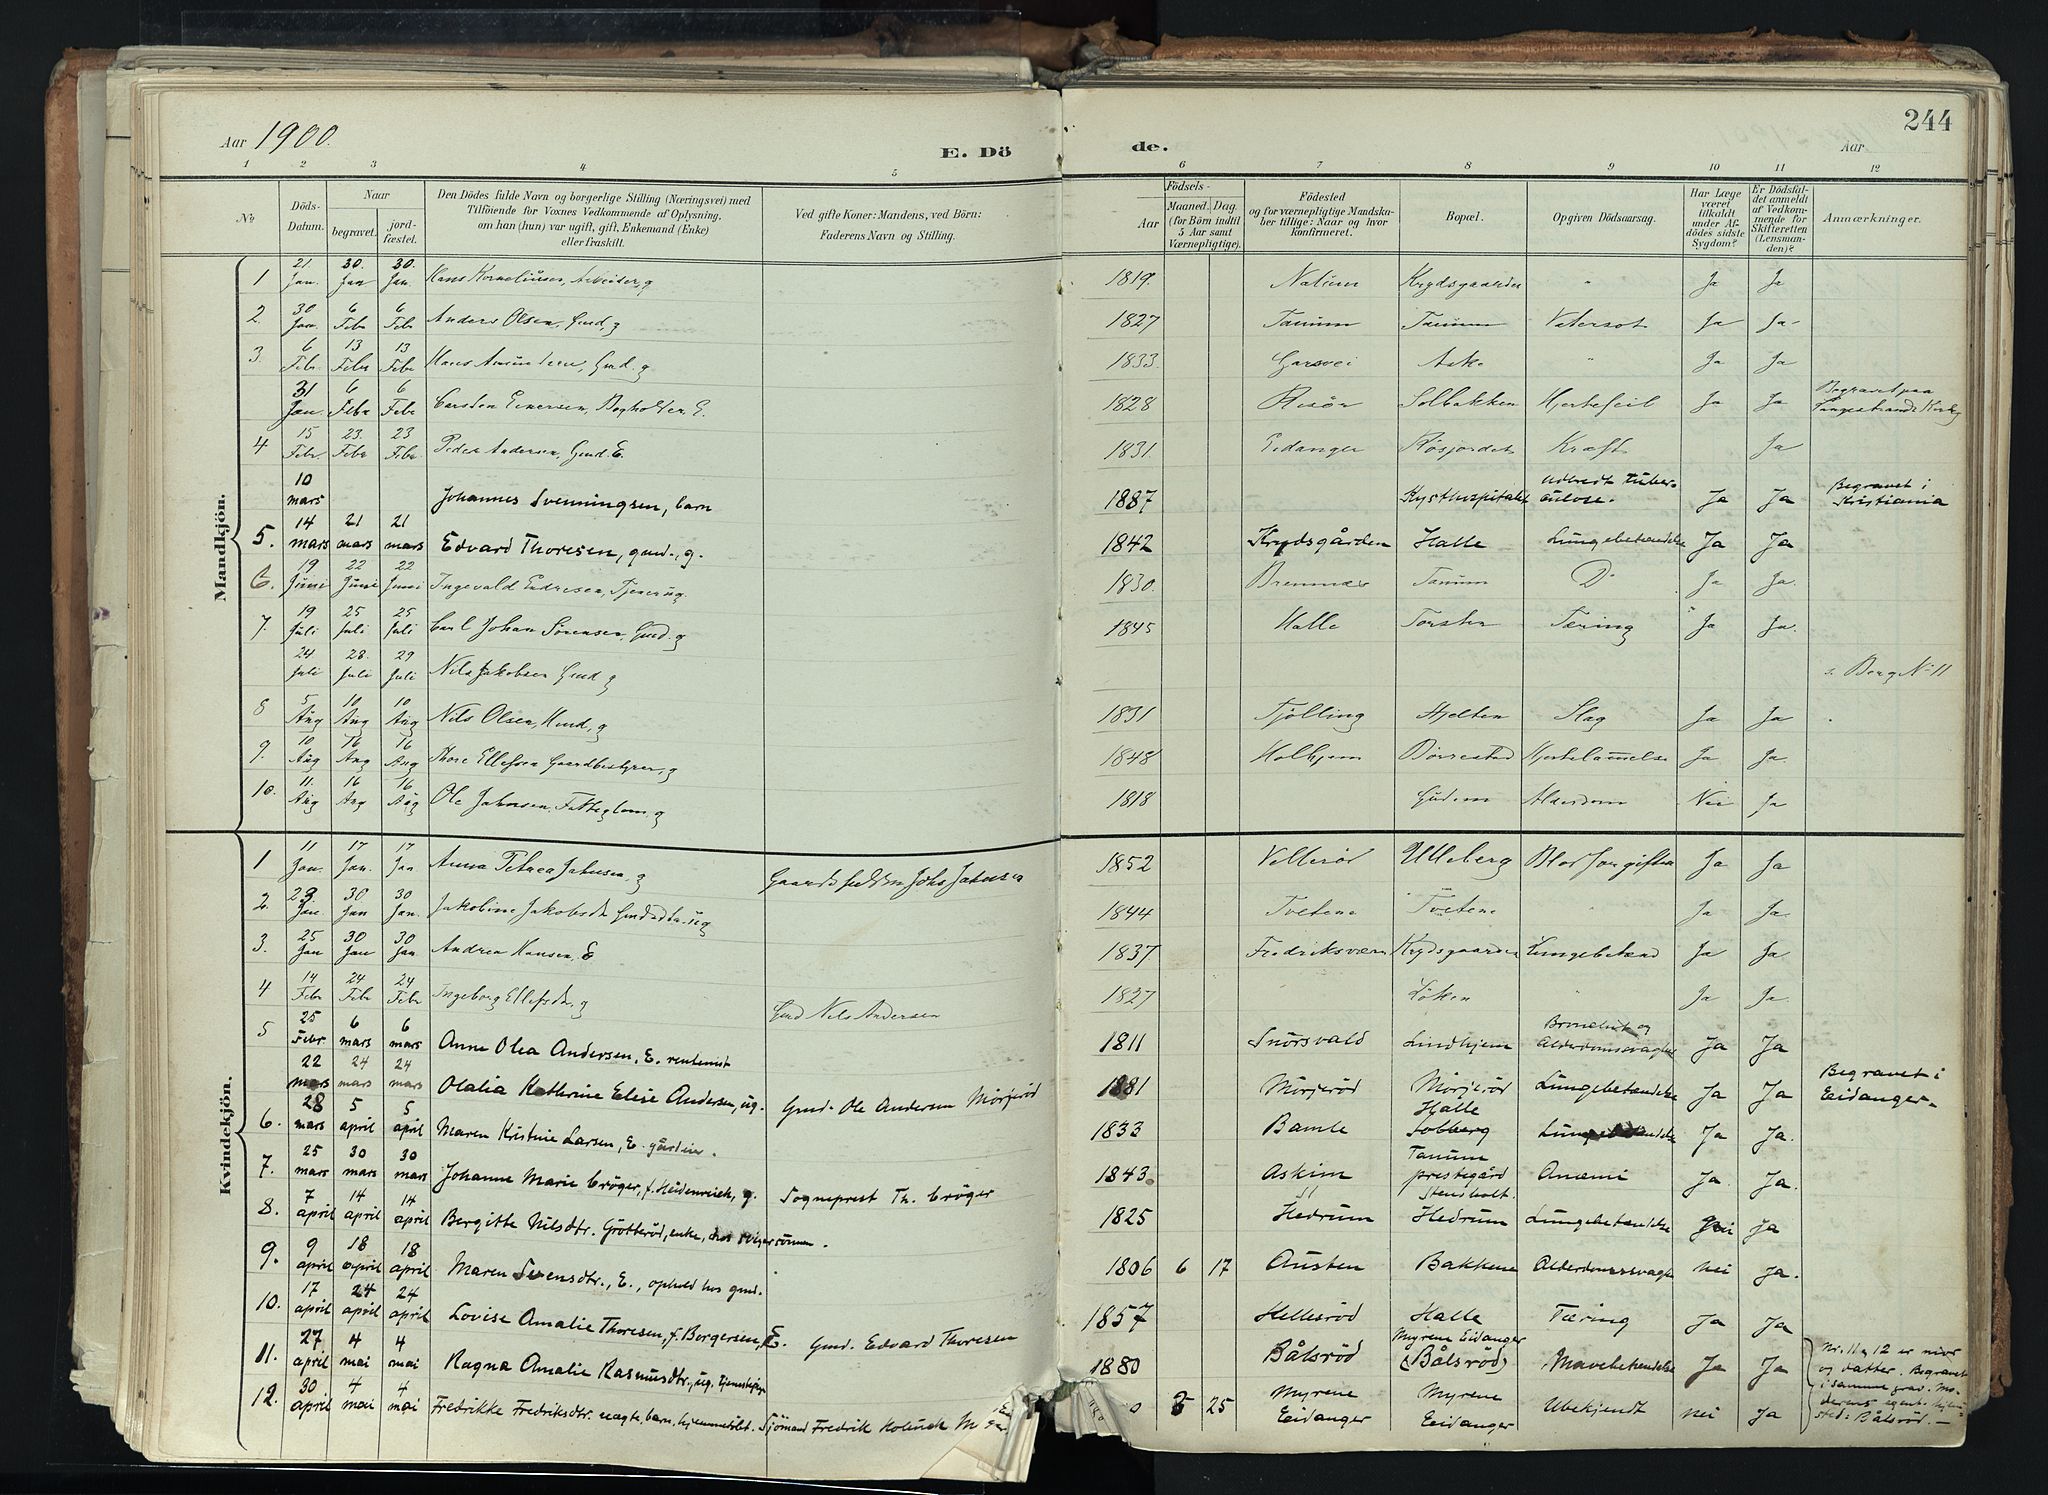 Aar 1900.
E. Dö de.
Aar
244
1 2 3 4 5 6 7 8 9 10 11 12
No
Döds-Datum.
Naar
begravet.
jord-fæstet.
Den Dödes fulde Navn og borgerlige Stilling (Næringsvei) med
Tilföiende for Voxnes Vedkommende af Oplysning.
om han (hun) var ugift, gift, Enkemand (Enke)
eller fraskilt.
Ved gifte Koner: Mandens, ved Börn:
Faderens Navn og Stilling.
Födsels-
Aar
Maaned. Dag.
(for Börn indtil
5 Aar samt
Værnepligtige).
Födested
og for værnepligtige Mandska-
ber tillige: Naar og hvor
konfirmeret.
Bopæl.
Opgiven Dödsaarsag.
Har Læge
været
tilkaldt
under Af-
dödes sidste
Sygdom?
Er Dödsfal-
det anmeldt
af Vedkom-
mende for
Skifteretten
(Lensman-
den)?
Anmærkninger.
Mandkjön.
1 21. Jan. 30. Jan 30. Jan. Hans Korneliusen, Arbeider, g 1819. Nalum Krydsgaarden " Ja Ja
2. 30 Jan. 6 Febr 6 Febr Anders Olsen, Gmd, g 1827 Tanum Tanum Vatersot Ja Ja
3. 6 Febr. 13 Febr 13 Febr Hans Amundsen, Gmd. g 1833 Gorsvei Aske " Ja Ja
31 Jan 6 Febr 6 Febr Carsten Enersen, Bogholder, E. 1828 Risör Solbakken Hjertefeil Ja Ja Begravet paa Langestrands Kirkeg
4 15 Febr. 23. Febr 23 Febr. Peder Andersen, Gmd. E. 1831. Eidanger Røsjordet Kræft Ja
10 mars Johannes Svenningsen, barn 1887 Kysthospitalet udbredt tuberculose. Ja Ja Begravet i Kristiania
5. 14 mars 21 mars 21 mars Edvard Thoresen, gmd., g. 1842 Krydsgården Halle Lungebetændelse Ja Ja
6. 19 Juni 22 Juni 22 Juni Ingevald Endresen, Tjener ug. 1830. Bremnæs Tanum Do Ja Ja.
7. 19 Juli 25 Juli 25 Juli Carl Johan Sörensen, Gmd. g 1845 Halle Torsten Tæring Ja Ja.
24 Juli 28. Juli 29 Juli Nils Jakobsen Gmd g s. Berg No 11
8 5 Aug 10 Aug 10 Aug Nils Olsen, Hmd, g 1831 Tjølling Hjelten Slag Ja Ja
9. 10 Aug 16 Aug 16 Aug Thore Ellefsen Gaardbestyrer, g 1848 Holhjem Børrestad Hjertelammelse Ja Ja.
10. 11. Aug 16 Aug 16 Aug Ole Jahnsen, Fattiglem. g 1818 Gudem Alderdom Nei Ja
Kvindekjön.
1 11 Jan. 17 Jan. 17 Jan Anna Petrea Jahnsen, g Johs Jahnsen 1852 Vellerød Ulleberg Blodforgiftn Ja Ja
2. 23. Jan. 30 Jan 30 Jan. Jakobine Jakobsdtr ug 1844 Tvetene Tvetene Ja Ja.
3. 25 Jan 30 Jan 30 Jan. Andrea Hansen, E 1837 Fredriksværn Krydsgaarden Lungebetænd Ja Ja
4 14 Febr 24 Feb 24 Febr Ingeborg Ellefsdtr, g Gmd Nils Andersen 1827 Løken " Ja Ja.
5 25 Febr. 6 mars 6 mars Anne Olea Andersen, E. rentenist 1811 Snörsvald Lindhjem og Alderdomssvaghet Ja Ja
22 mars 24 mars 24 mars Olalia Kathrine Elise Andersen, ug. Gmd. Ole Andersen Mörjeröd 1881 Mörjeröd Mörjeröd Lungebetændelse Ja Ja Begravet i Eidanger.
6. 28 mars 5 april 5 april Maren Kristine Larsen, E. gårdm. 1833 Bamle Halle Solberg Lungebetændelse Ja Ja.
7. 25 mars 30 mars 30 mars Johanne Marie Cröger, f. Heidenreich, g. Sogneprest Th. Cröger 1843. Askim Tanum prestegård Anæmi Ja. Ja.
8. 7 april 14 april 14 april Bergitte Nilsdtr. Gröttöröd, enke, hos svigersönnen. 1825 Hedrum Stensholt. Hedrum Lungebetændelse nei Ja
9. 9 april 18 april 18 april Maren Svensdtr., E., ophold hos gmd. 1806 6 17 Austen Bakkene Alderdomssvaghet nei Ja.
10. 17 april 24 april 24 april Lovise Amalie Thoresen, f. Borgersen, E. Gmd. Edvard Thoresen 1857 Hellesröd Halle Tæring Ja Ja
11. 27 april 4 mai 4 mai Ragna Amalie Rasmusdtr., ug. tjenestepige 1880 Bålsröd Myrene Eidanger (Bålsröd) Mavebetændelse Ja Ja Nr. 11 & 12 er mor og datter. Begravet i samme grav. Moderens egentl. hjemsted: Bålsröd.
12. 30 april 4 mai 4 mai Fredrikke Fredriksdtr. uægte, barn, Sjömand Fredrik 0 5 25 Myrene Eidanger Myrene Eidanger Ubekjendt nei Ja